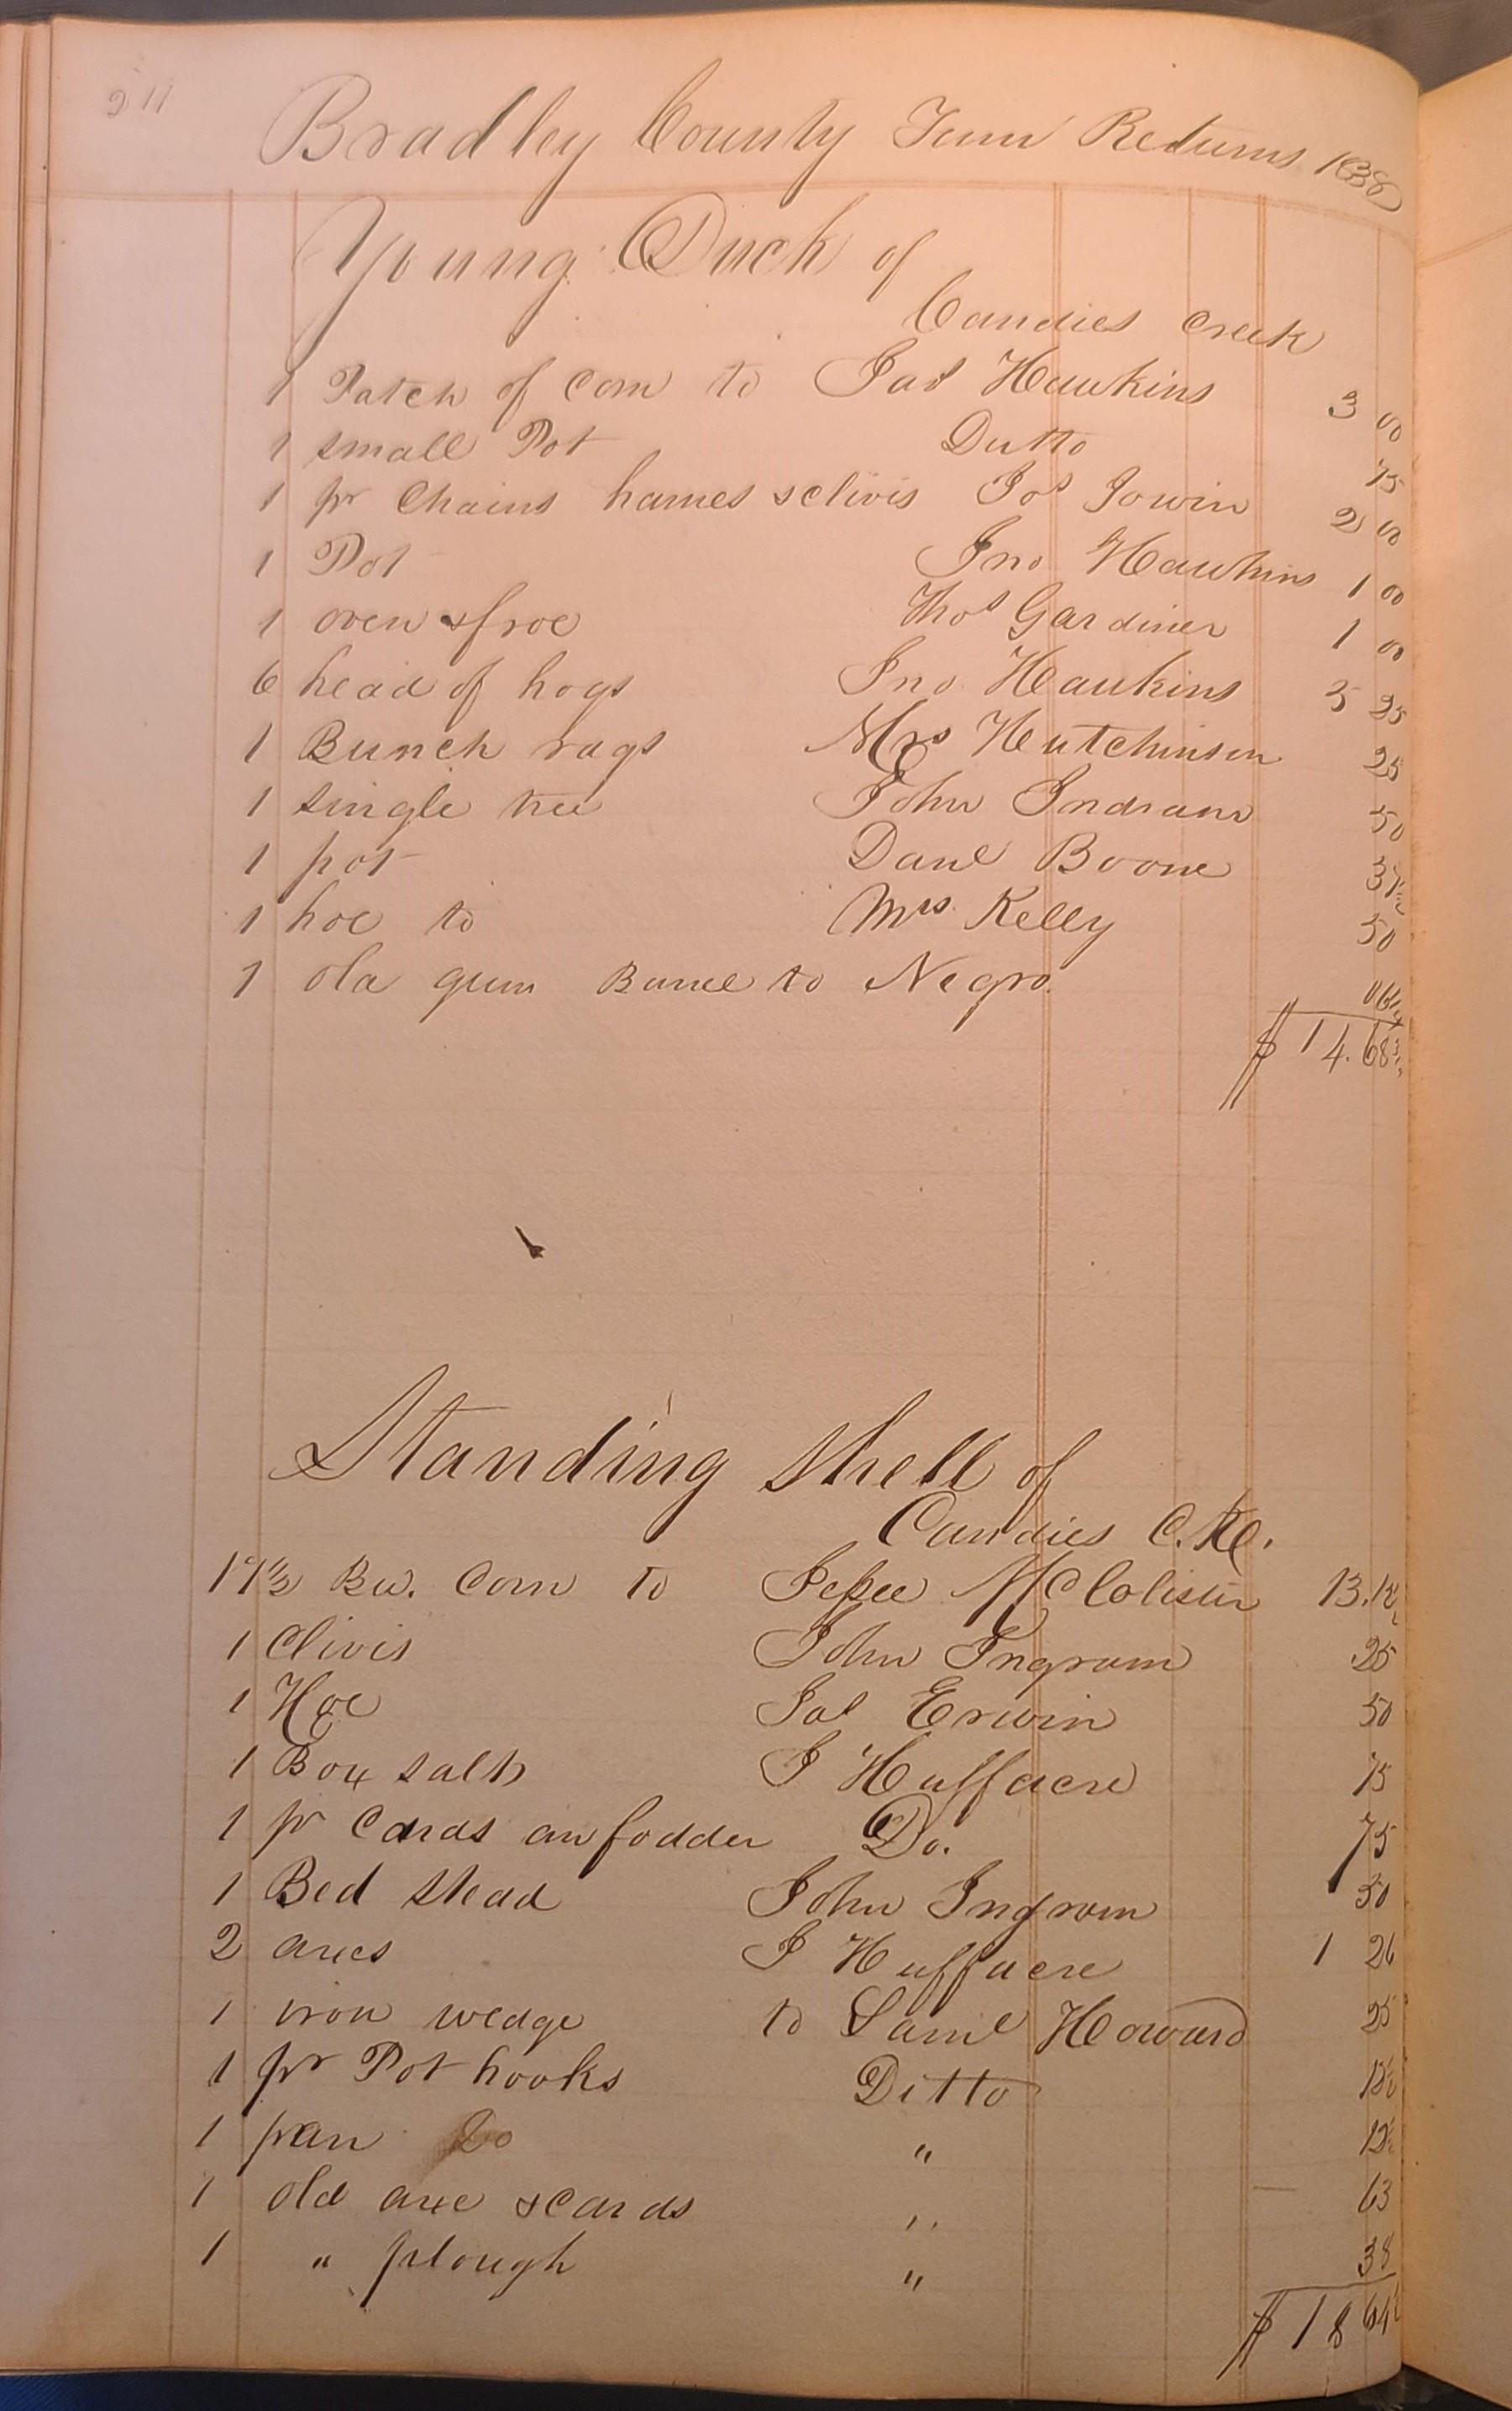 211
Bradley County Tenn Returns 1838
Young Duck of
Candies Creek
1 Patch of corn to Jas Hawkins 3 00
1 small Pot Dutto 75
1 pr Chains hames & clivis Jos Jowin 2 00
1 Pot Jno Hawkins 1 00
1 oven & froe Thos Gardiner 1 00
6 head of hogs Jno Hawkins 5 25
1 Bunch rags Mrs Hutchinson 25
1 single tree John Indram 50
1 pot Danl Boone 37½
1 hoe to Mrs Kelly 50
1 old gun Barrel to Negro. 06¼
$ 14.68¾
Standing Shell of
Candies C.K.
17½ Bu. Corn to Jessee McColister 13.12½
1 Clivis John Ingram 25
1 Hoe Jas Erwin 50
1 Box salts J Huffacre 75
1 pr Cards an fodder Do. 75
1 Bed Stead John Ingram 50
2 axes J Huffacre 1 26
1 iron wedge to Saml Howard 25
1 pr Pot hooks Ditto 12½
1 pan Do " 12½
1 old axe & cards " 63
1 " plough " 38
$ 18 64